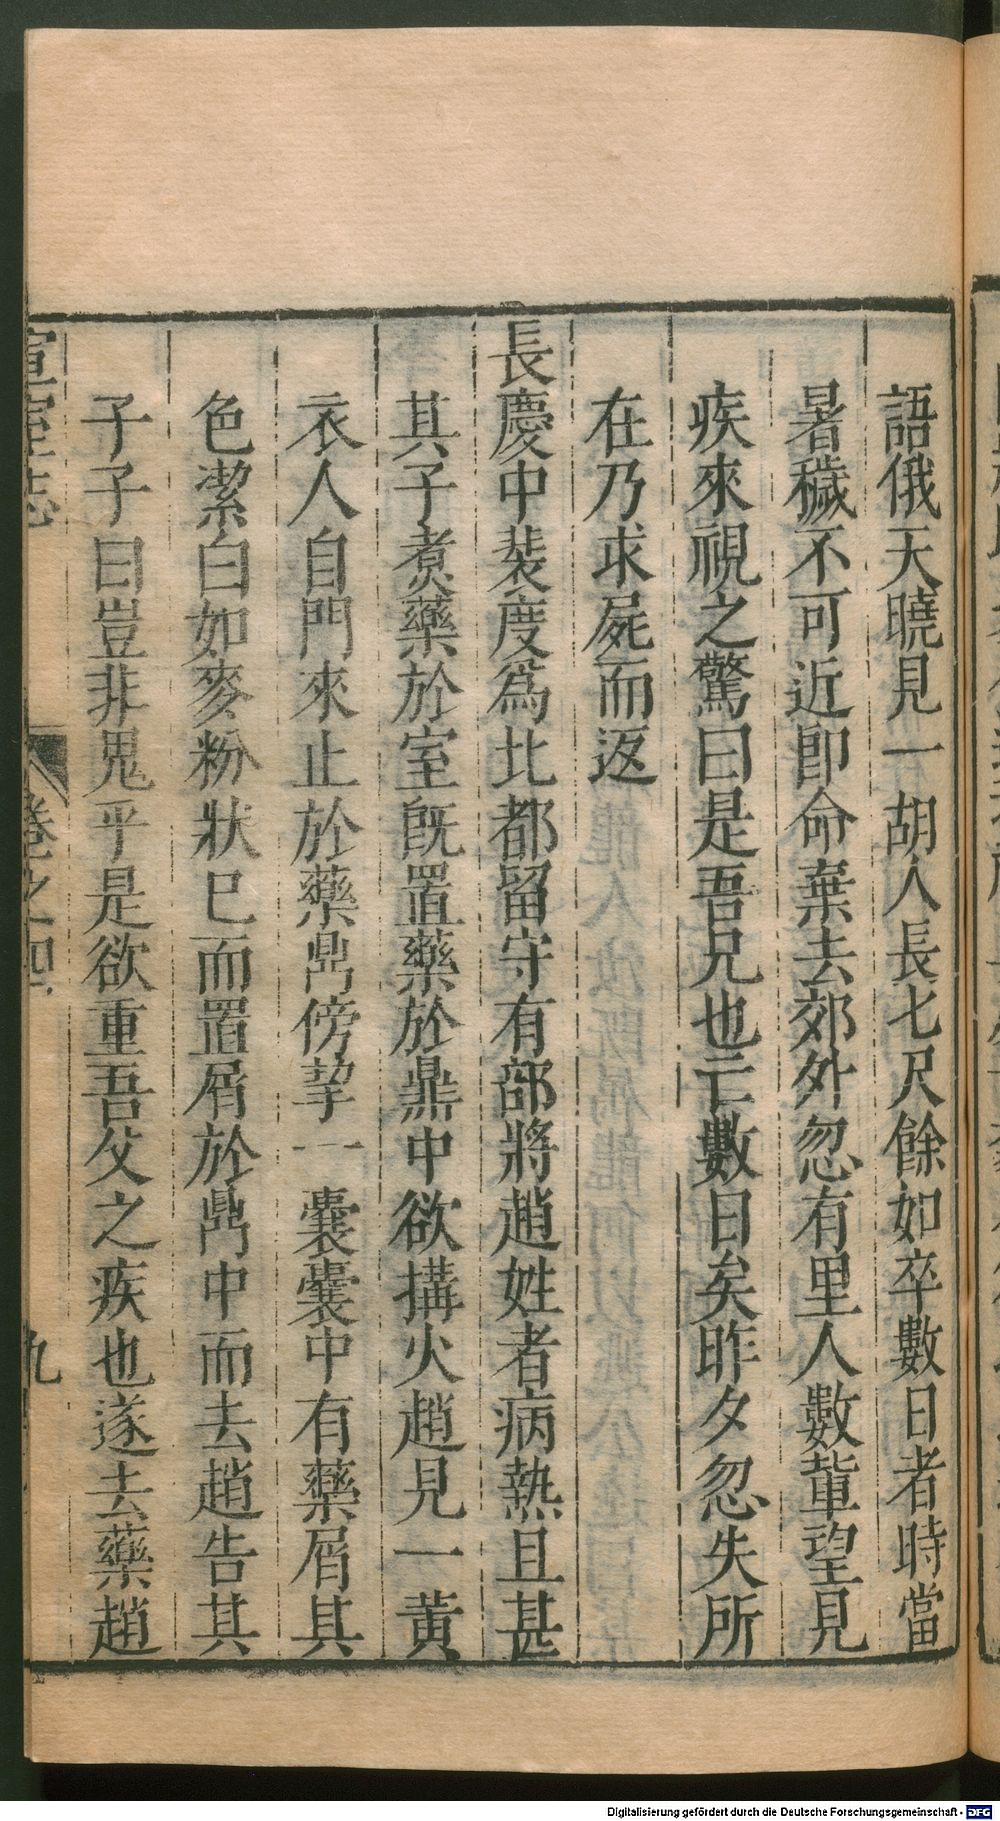 語俄天曉見一胡人長七尺餘如卒數日者時當
暑穢不可近即命棄去郊外忽有里人數輩望見
疾來視之驚曰是吾兄也亡數日矣昨夕忽失所
在乃求屍而返
長慶中裴度爲北都留守有部將趙姓者病熱且甚
其子煮藥於室旣置藥於鼎中欲搆火趙見一黃
衣人自門來止於藥鼎傍挈一囊囊中有藥屑其
色潔白如麥粉狀已而置屑於鼎中而去趙告其
子子曰豈非鬼乎是欲重吾父之疾也遂去藥趙
宣室志 卷之四 九
Digitalisierung gefördert durch die Deutsche Forschungsgemeinschaft - DFG